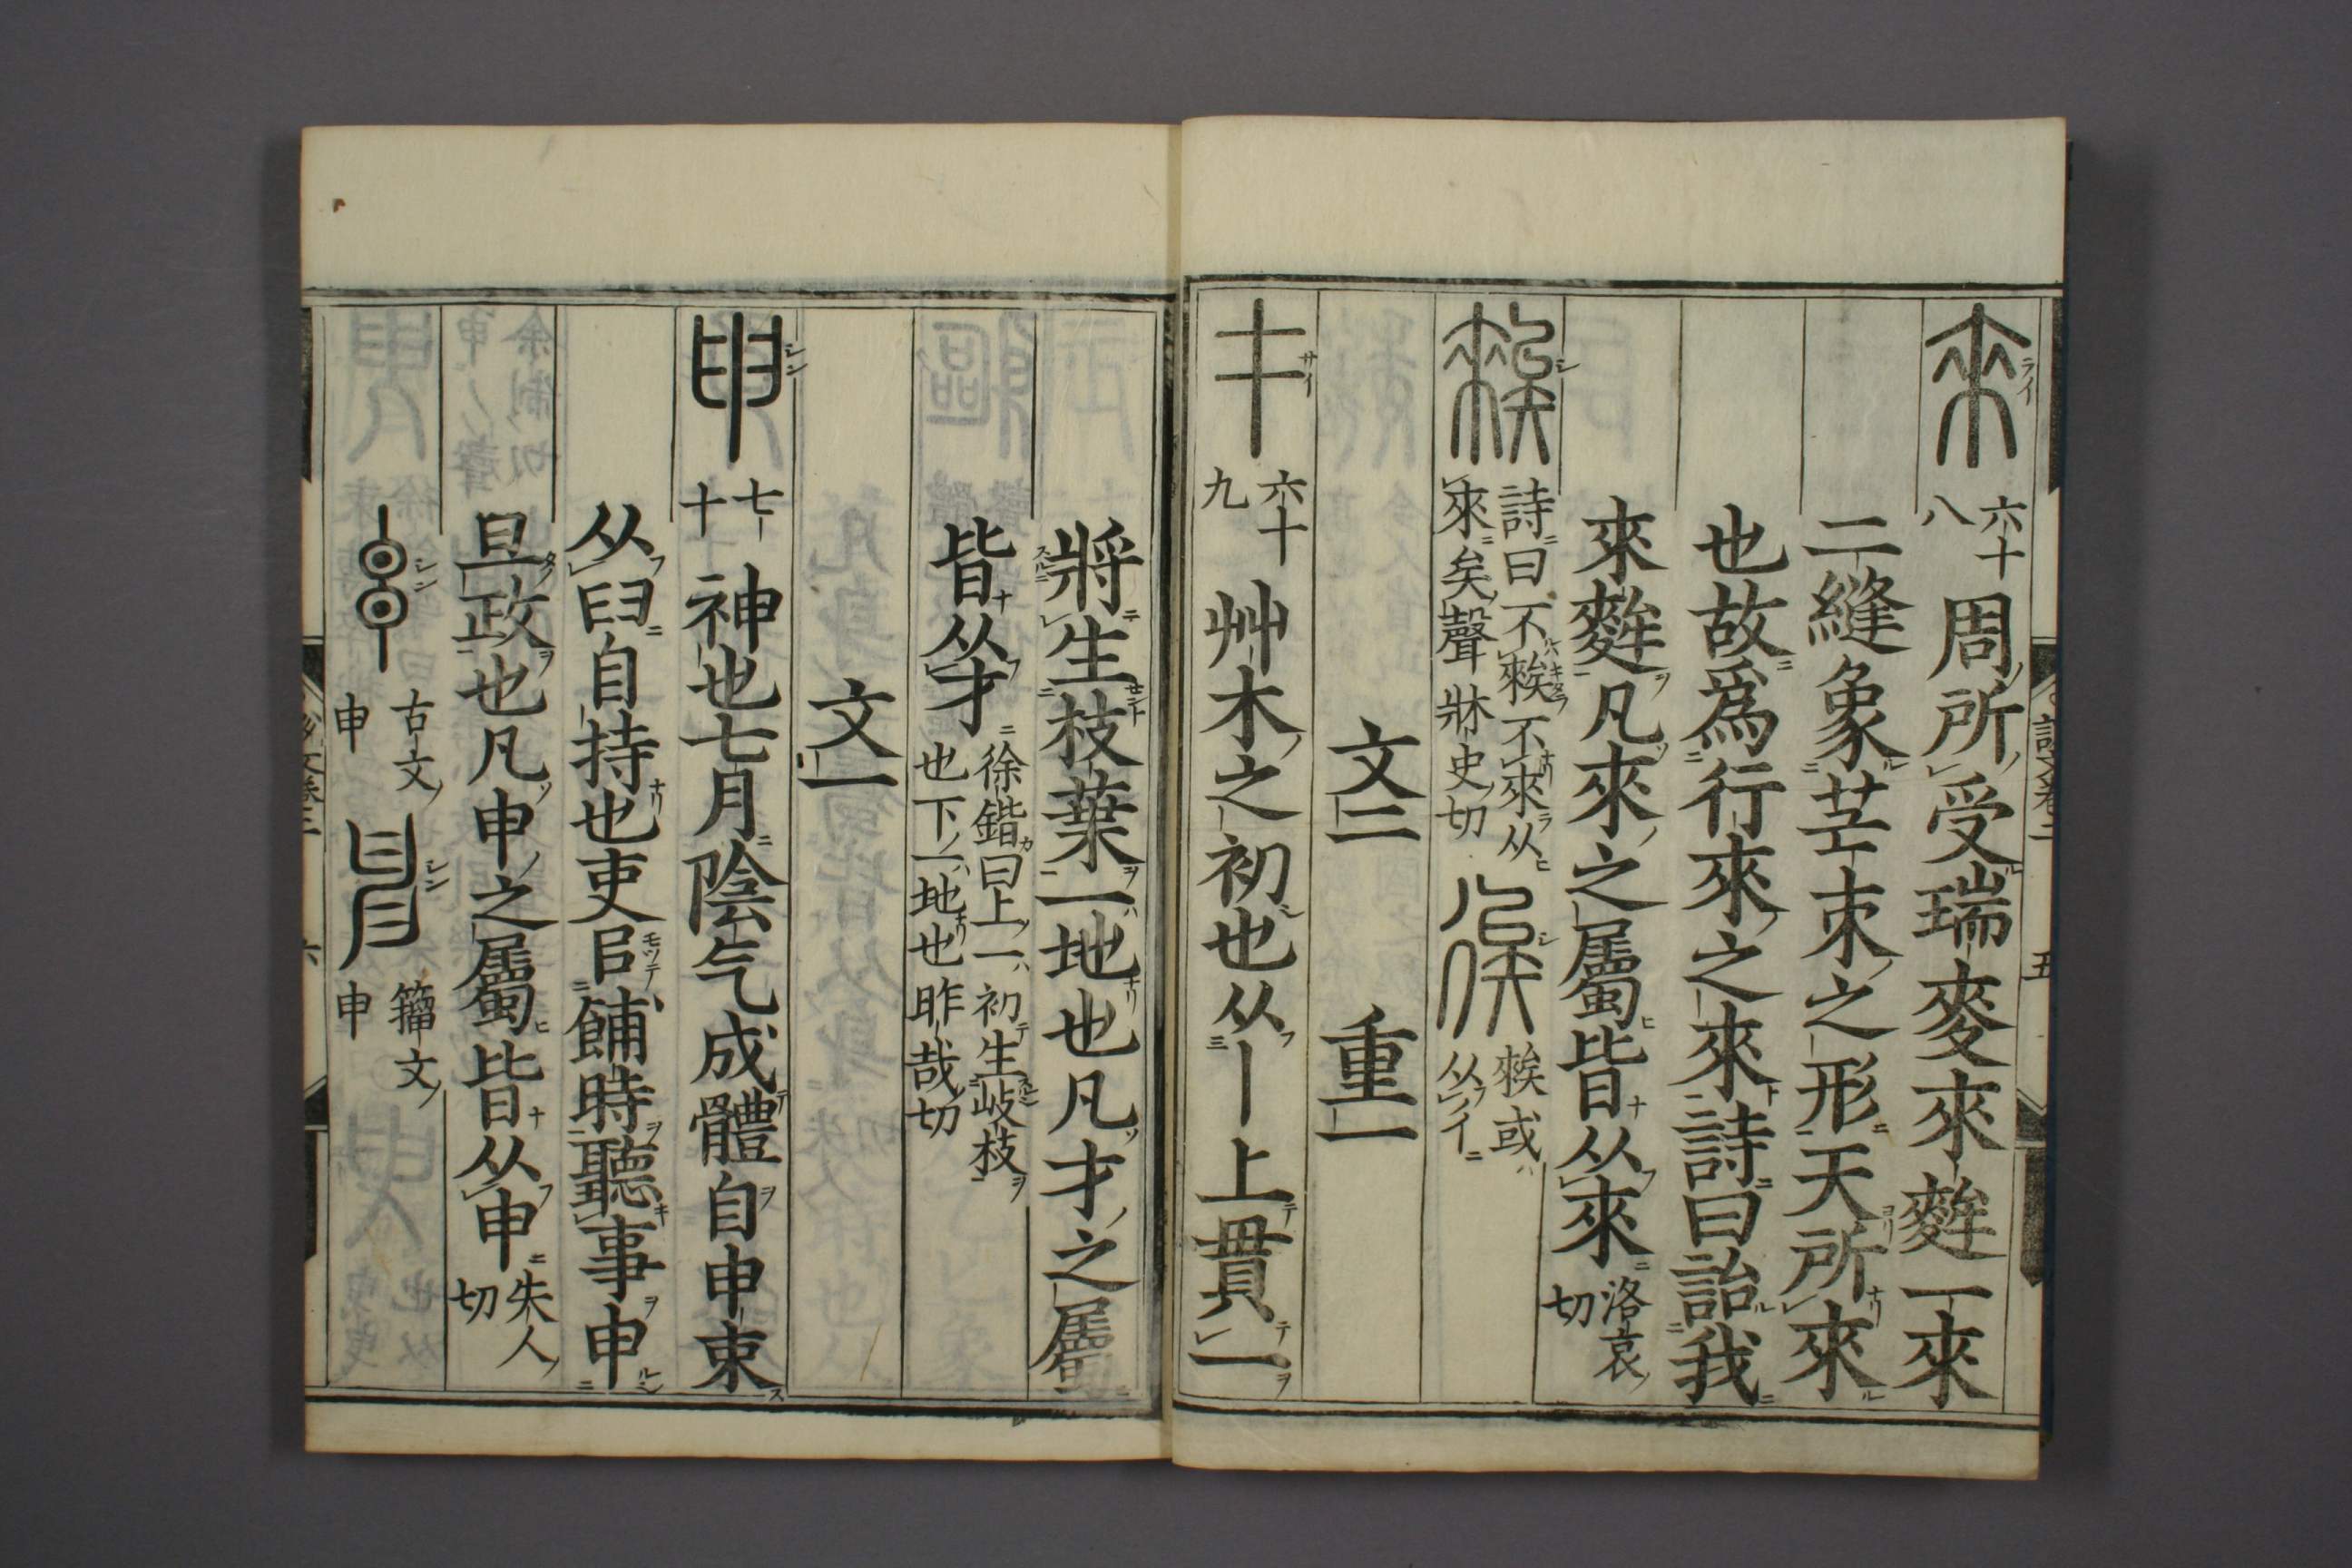 來 六十八 周所受瑞麥來麰一來
二縫象芒朿之形天所來
也故爲行來之來詩曰詒我
來麰凡來之屬皆从來 洛哀切
𥏳 詩曰不𥏳不來从來矣聲牀史切 俟 𥏳或从彳
文二 重一
才 六十九 艸木之初也从丨上貫一
將生枝葉一地也凡才之屬
皆从才 徐鍇曰上一初生歧枝也下一地也昨哉切
文一
申 七十 神也七月陰气成體自申束
从𦥑自持也吏𦣞餔時聽事申
旦政也凡申之屬皆从申 失人切
古文申 籀文申